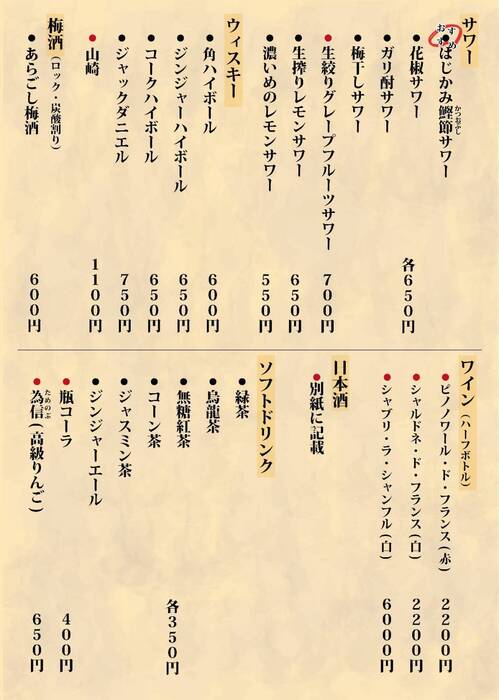 サワー
おすすめ
はじかみ鰹節サワー
かつおぶし
花椒サワー
ガリ酎サワー
梅干しサワー
各650円
生絞りグレープフルーツサワー 700円
生搾りレモンサワー 650円
濃いめのレモンサワー 550円
ウィスキー
角ハイボール 600円
ジンジャーハイボール 650円
コークハイボール 650円
ジャックダニエル 750円
山崎 1100円
梅酒(ロック・炭酸割り)
あらごし梅酒 600円
ワイン(ハーフボトル)
ピノノワール・ド・フランス(赤) 2200円
シャルドネ・ド・フランス(白) 2200円
シャブリ・ラ・シャンフル(白) 6000円
日本酒
別紙に記載
ソフトドリンク
緑茶
烏龍茶
無糖紅茶
コーン茶
ジャスミン茶
ジンジャーエール
各350円
瓶コーラ 400円
ためのぶ
為信(高級りんご) 650円